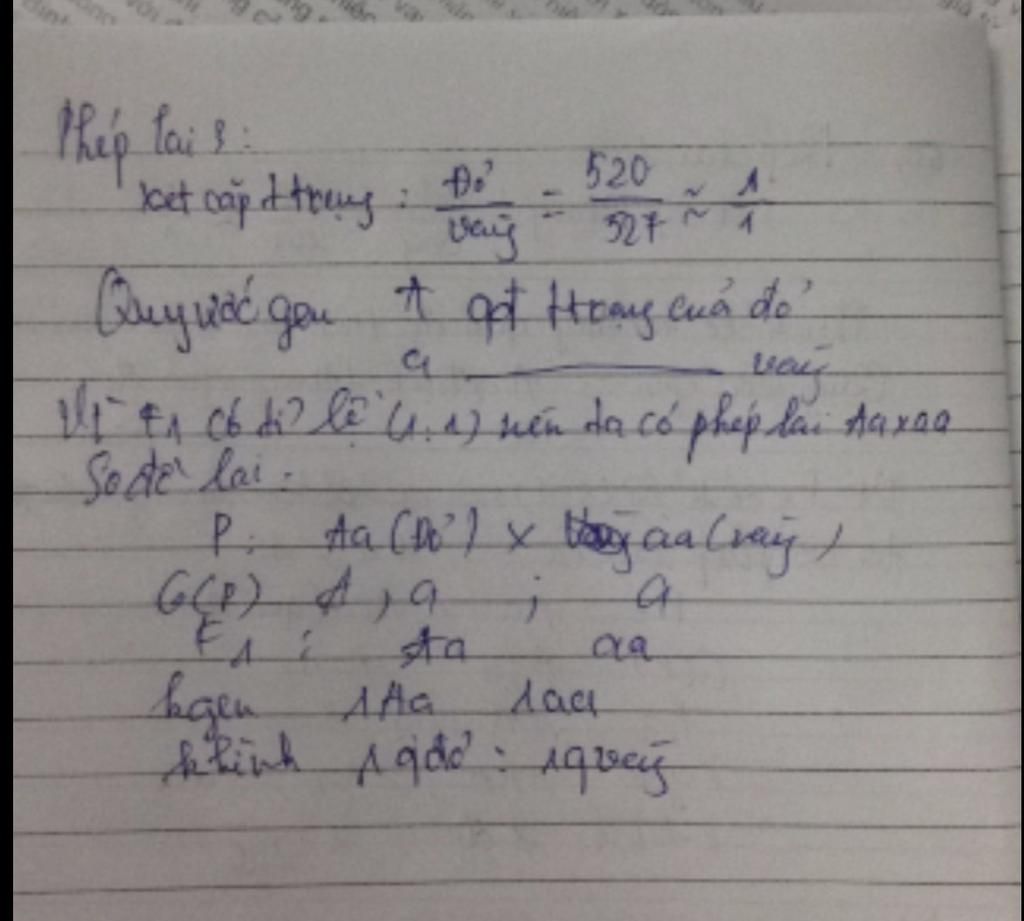 Phép lai 3:
Xét cặp t trạng : Đỏ/vàng = 520/527 ≈ 1/1
Quy ước gen A qđ t trạng quả đỏ
a ——— vàng
Vì F1 có tỉ lệ (1:1) nên ta có phép lai Aa x aa
Sơ đồ lai:
P: Aa (Đỏ) x aa (vàng)
G(P) A, a ; a
F1 : Aa aa
kgen 1Aa 1aa
khình 1qđỏ : 1qvàng